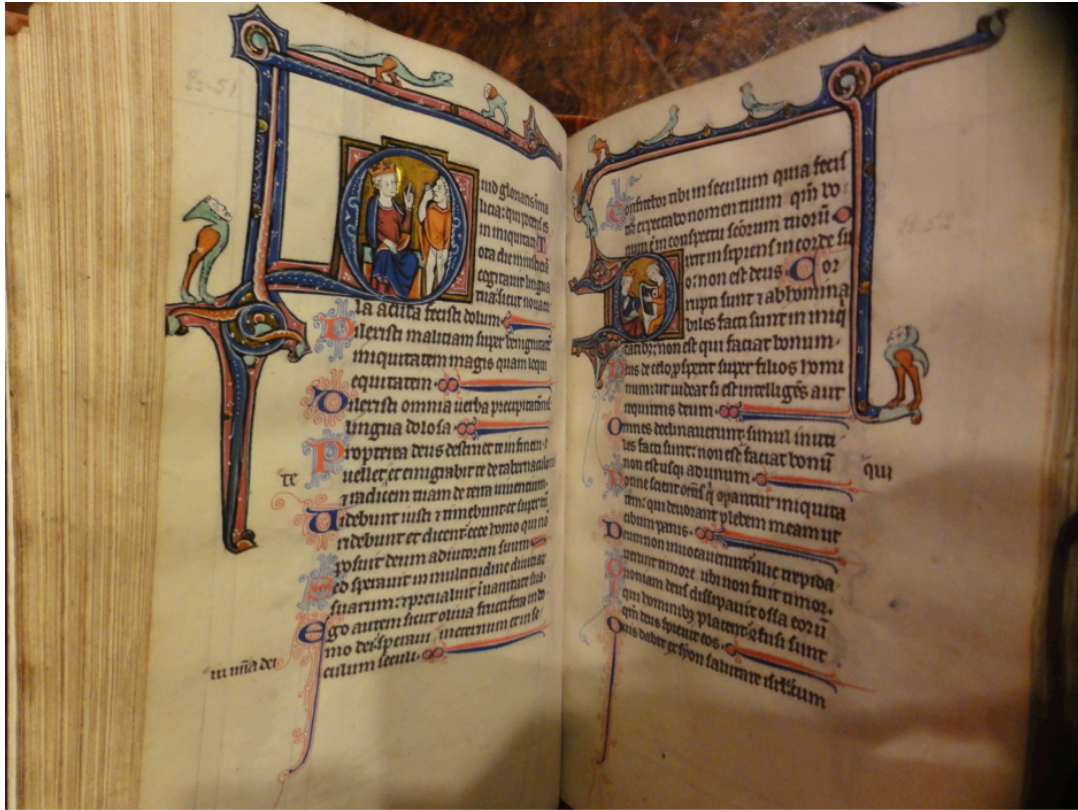 Ps. 51
Quid gloriaris in ma
licia: qui potens es
in iniquitate T
ota die iniusticiā
cogitauit lingua
tua: sicut nouacu
la acuta fecisti dolum
Dilexisti maliciam super benignitatē
iniquitatem magis quam loqui
equitatem
Dilexisti omnia uerba precipitationis
lingua dolosa
Propterea deus destruet te in finem: e
te uellet, et emigrabit te de tabernaculo
⁊ radicem tuam de terra uiuentium.
Uidebunt iusti ⁊ timebunt et super eū
ridebunt et dicent: ecce homo qui nō
posuit deum adiutorem suum
Sed sperauit in multitudine diuitiar
suarum: ⁊ preualuit ī uanitate sua.
Ego autem sicut oliua fructifera in do
mo dei: speraui in eternum et in se
in mīa dei
culum seculi.
Confitebor tibi in seculum quia fecis
ti: et expectabo nomen tuum qm̄ bo
num ē in conspectu scōrum tuorū
Dixit insipiens in corde su
o: non est deus Cor
rupti sunt ⁊ abhomina
biles facti sunt in iniq
tatibȝ: non est qui faciat bonum.
Deus de celo ꝓspexit super filios homi
num: ut uideat si est intelligēs aut
requirens deum
Omnes declinauerunt, simul inuti
les facti sunt: non est faciat bonū qui
non est usqȝ ad unum
Ps. 52
Nonne scient om̄s q̇ operantur iniquita
tem: qui deuorant plebem meam ut
cibum panis
Deum non inuocauerunt: illic trepida
uerunt timore ubi non fuit timor.
Quoniam deus dissipauit ossa eorū
qui hominibȝ placent: cōfusi sunt
qm̄ deus spreuit eos
Quis dabit ex syon salutare isrl: cum